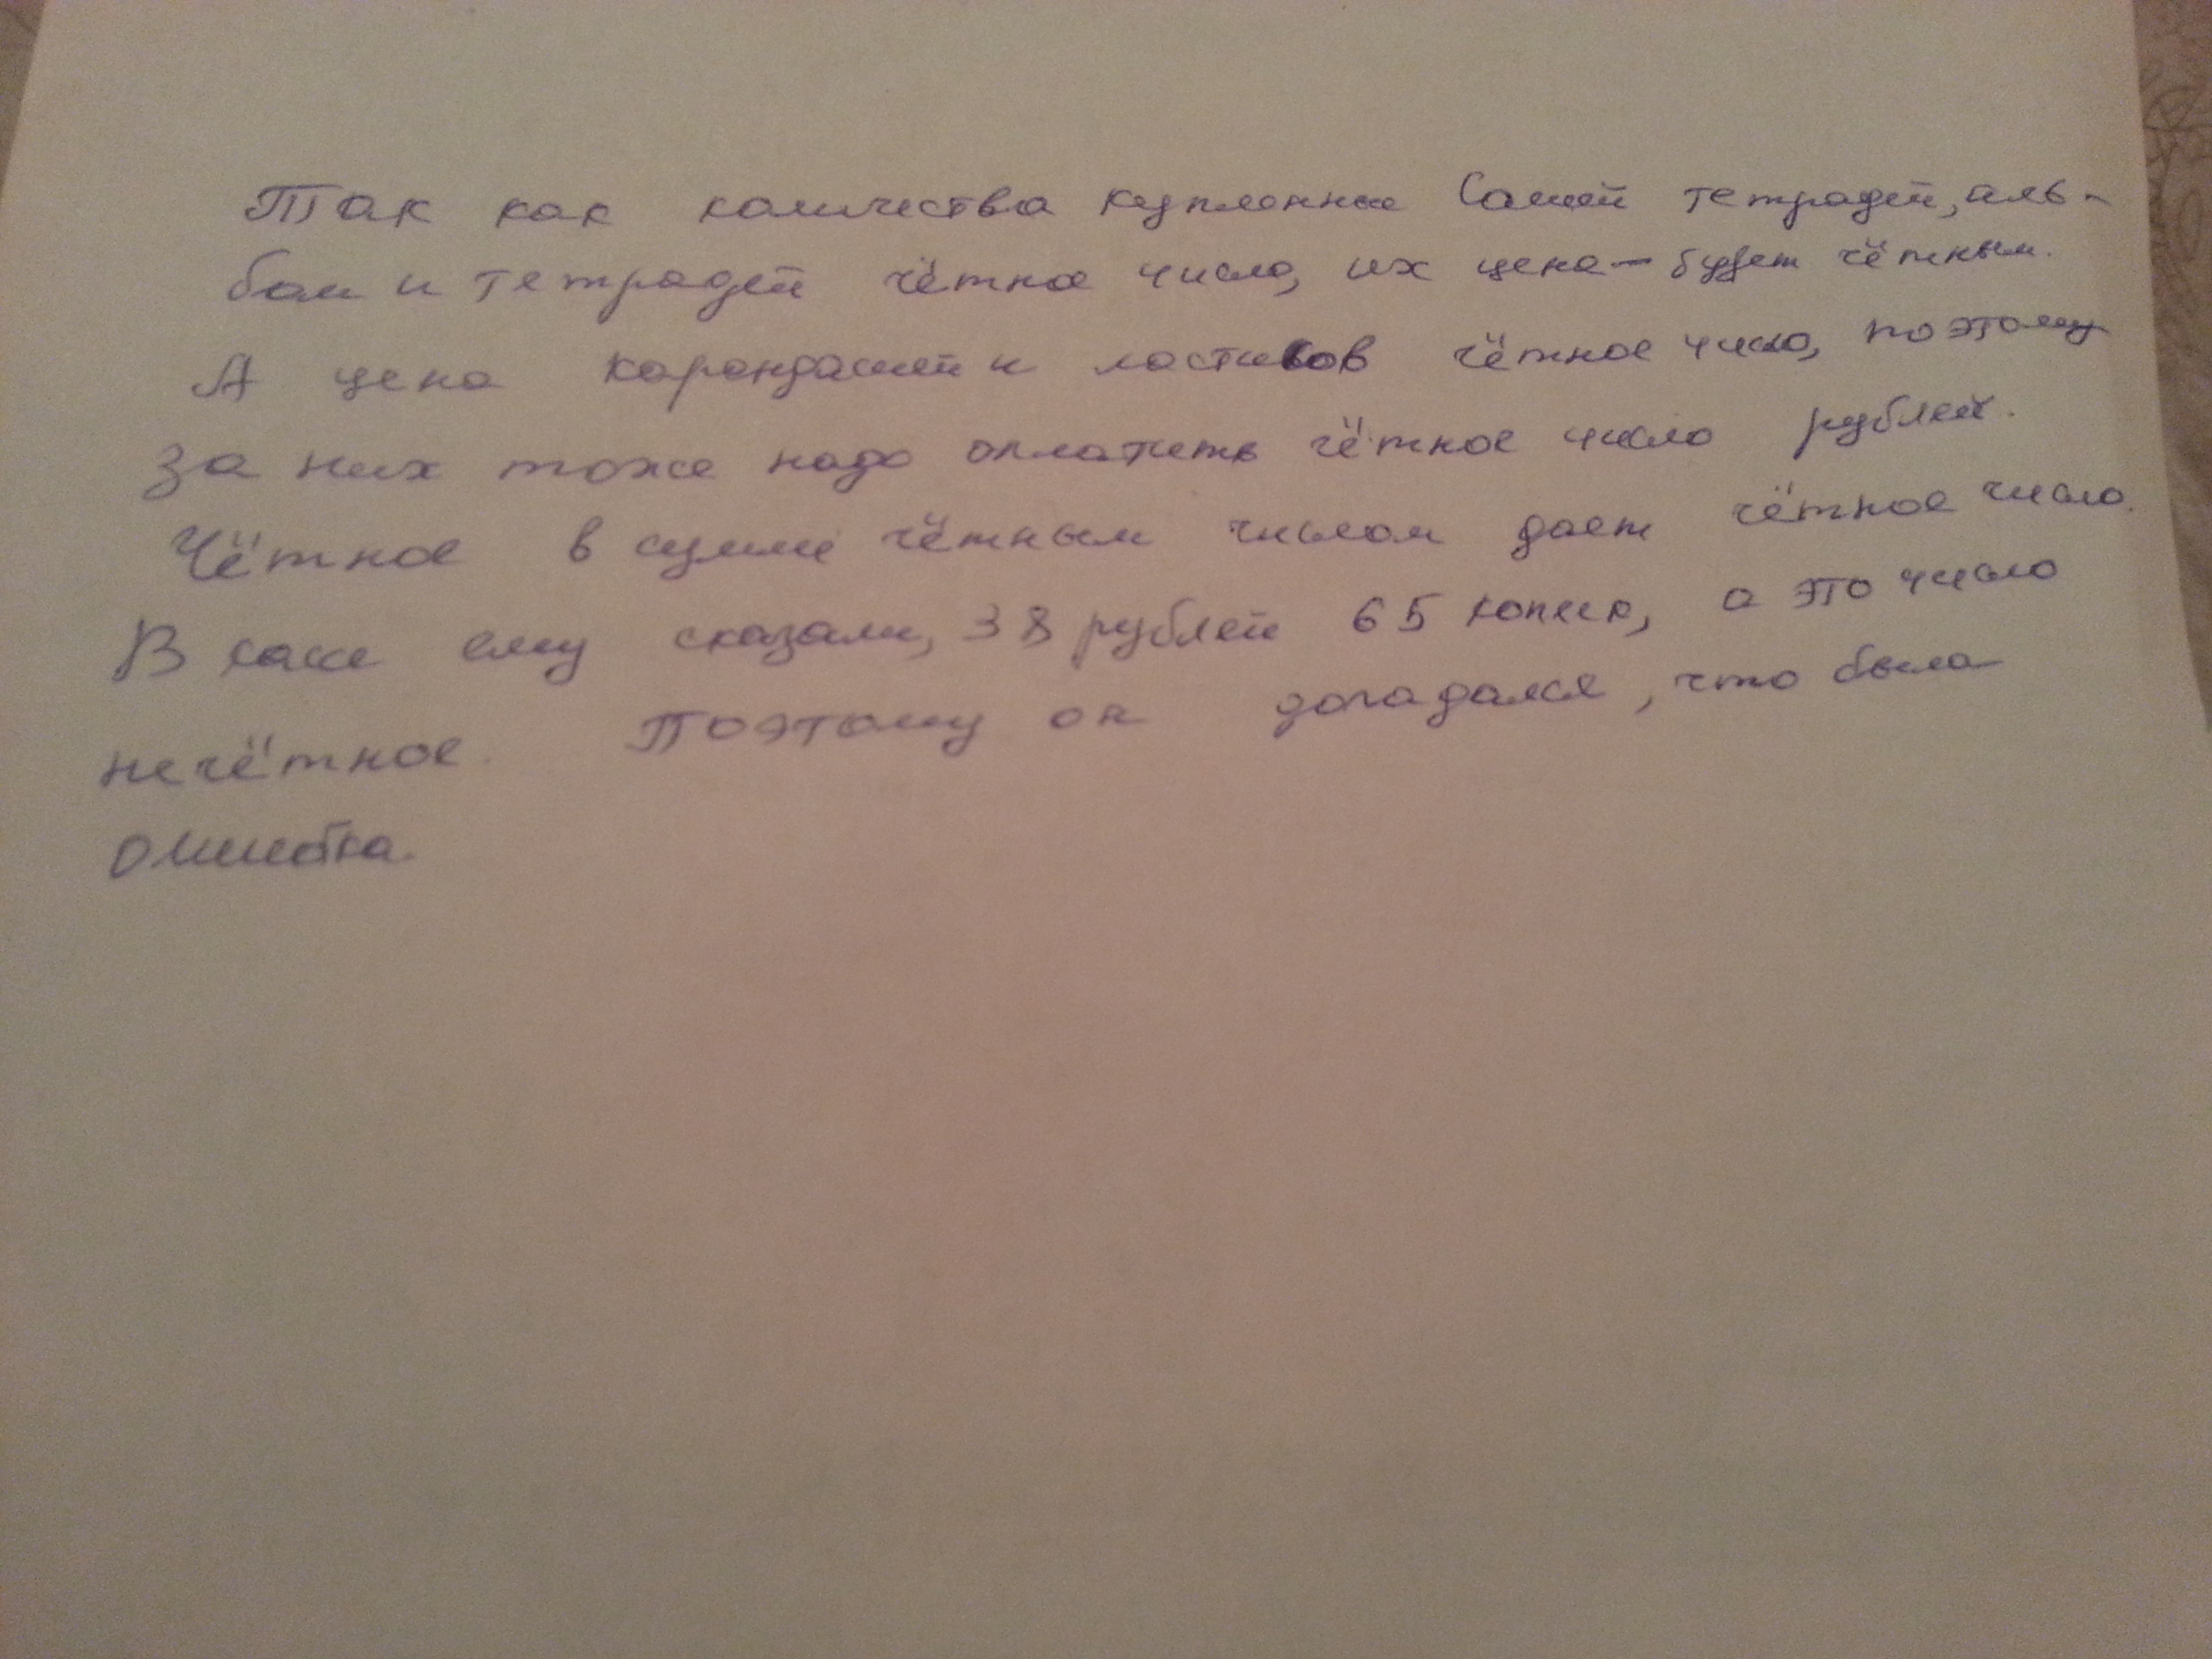 Так как количества купленные Сашей тетрадей, аль-
бом и тетрадей чётное число, их цена - будет чётным.
А цена карандашей и ластиков чётное число, поэтому
за них тоже надо оплатить чётное число рублей.
Чётное в сумме чётным числом дает чётное число.
В кассе ему сказали, 38 рублей 65 копеек, а это число
нечётное. Поэтому он догадался, что была
ошибка.